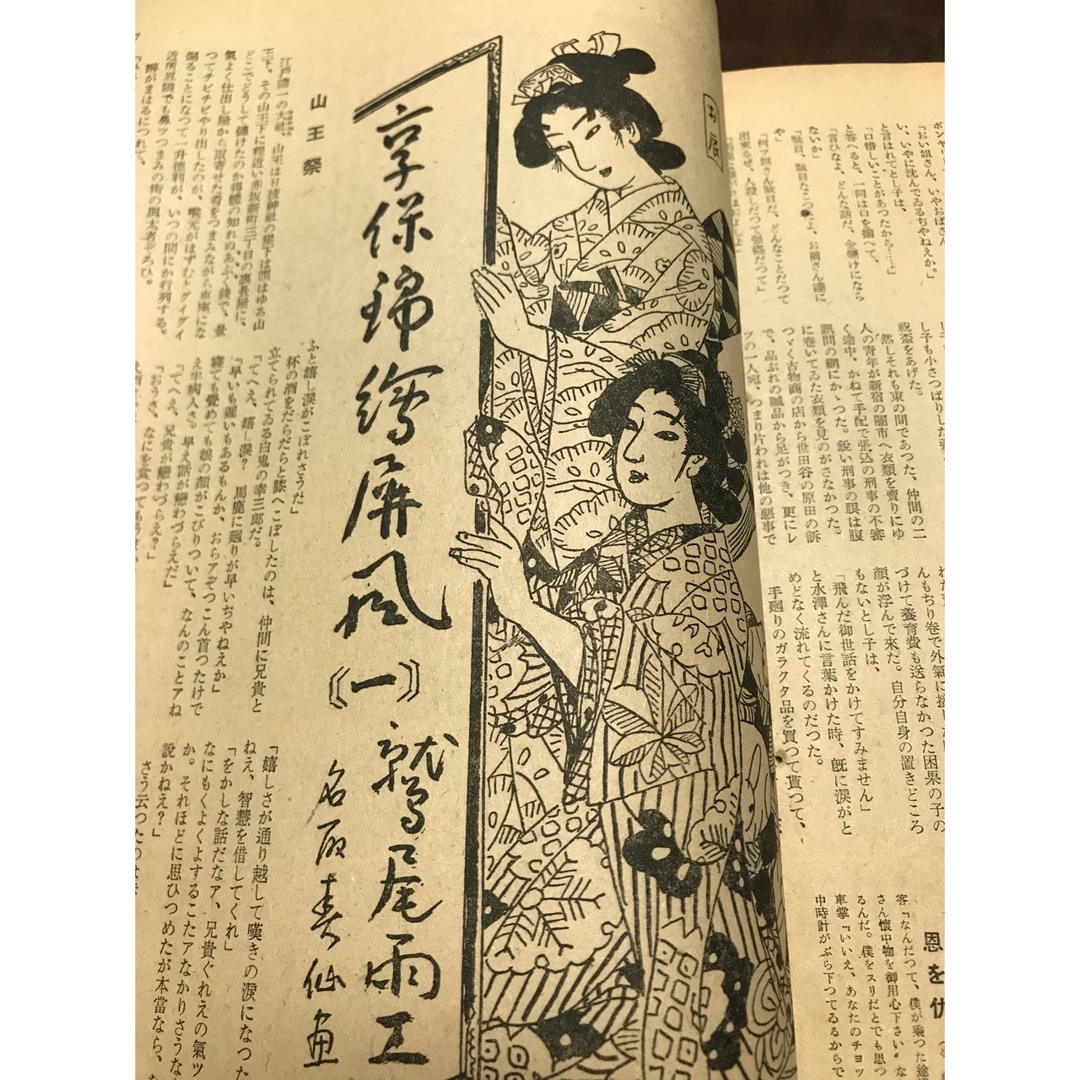 い、いやに沈んでゐるぢやねえか。」
と言はれてとし子は、
「口惜しいことがあつたから……」
と答へると、一同は口を揃へて、
「言ひなよ、どんな話だ、金儲けになら
ないか」
「駄目、駄目なこつたよ、お前さん達に
や」
「何ッ姐さん駄目だ、どんなことだつて
出來るぜ、人殺しだつて強盗だつて」
し子も小さつぱりした
祝盃をあげた。
然しそれも束の間であつた、仲間の二
人の青年が新宿の闇市へ衣類を賣りにゆ
く途中、かねて手配で張込の刑事の不審
訊問の網にかゝつた。鋭い刑事の眼は腹
に巻いてゐた衣類を見のがさなかつた。
つゞく古物商の店から世田谷の原田の訴
で、品ぶれの贓品から足がつき、更にレ
ツの一人宛、つまり片われは他の悪事で
んもちり巻で外氣に
づけて養育費も送らなかつた困果の子の
顔が浮んで來た。自分自身の置きどころ
もないとし子は、
「飛んだ御世話をかけてすみません」
と水澤さんに言葉かけた時、旣に涙がと
めどなく流れてくるのだつた。
手廻りのガラクタ品を買つて貰つて、
恩を仇
客「なんだつて、僕が乗つた途
さん懷中物を御用心下さい〟な
るんだ。僕をスリだとでも思つ
車掌『いいえ、あなたのチョッ
中時計がぶら下つてゐるからで
享保錦繪屏風《一》
鷲尾雨工
名取春仙画
山王祭
江戸随一の大社、山王は日枝神社の崖下は謂はゆる山
王下、その山王下に程近い赤坂新町三丁目の裏長屋に、
どこでどうして儲けたのか得體の知れぬあぶく錢で、景
氣よく仕出し屋から取寄せた肴をつまみながら車座にな
つてチビチビやり出したのが、喉元がはずむとグイグイ
煽ることになつて一升德利が、いつの間にか行列する。
近所界隈でも鼻ッつまみの街の與太者ぞろひ。
醉がまはるにつれて、
ふと嬉し涙がこぼれさうだ」
杯の酒をだらだらと膝へこぼしたのは、仲間に兄貴と
立てられてゐる白鬼の幸三郎だ。
「てへえ、嬉し涙?　馬鹿に廻りが早いぢやねえか」
「早いも遲いもあるもんか、おらアぞつこん首つたけで
寢ても覺めても娘の顏がこびりついて、なんのことアね
え半病人さ。早え話が戀わづらえだ」
「てへえ、兄貴が戀わづらえ?」
「おうさ、なにを食つてもうま
「嬉しさが通り越して嘆きの涙になつた
ねえ、智慧を借してくれ」
「をかしな話だなア、兄貴ぐれえの氣ッ
なにもくよくよするこたアなかりさうな
か。それほどに思ひつめたが本當なら、
說かねえ?」
さう云つたのは